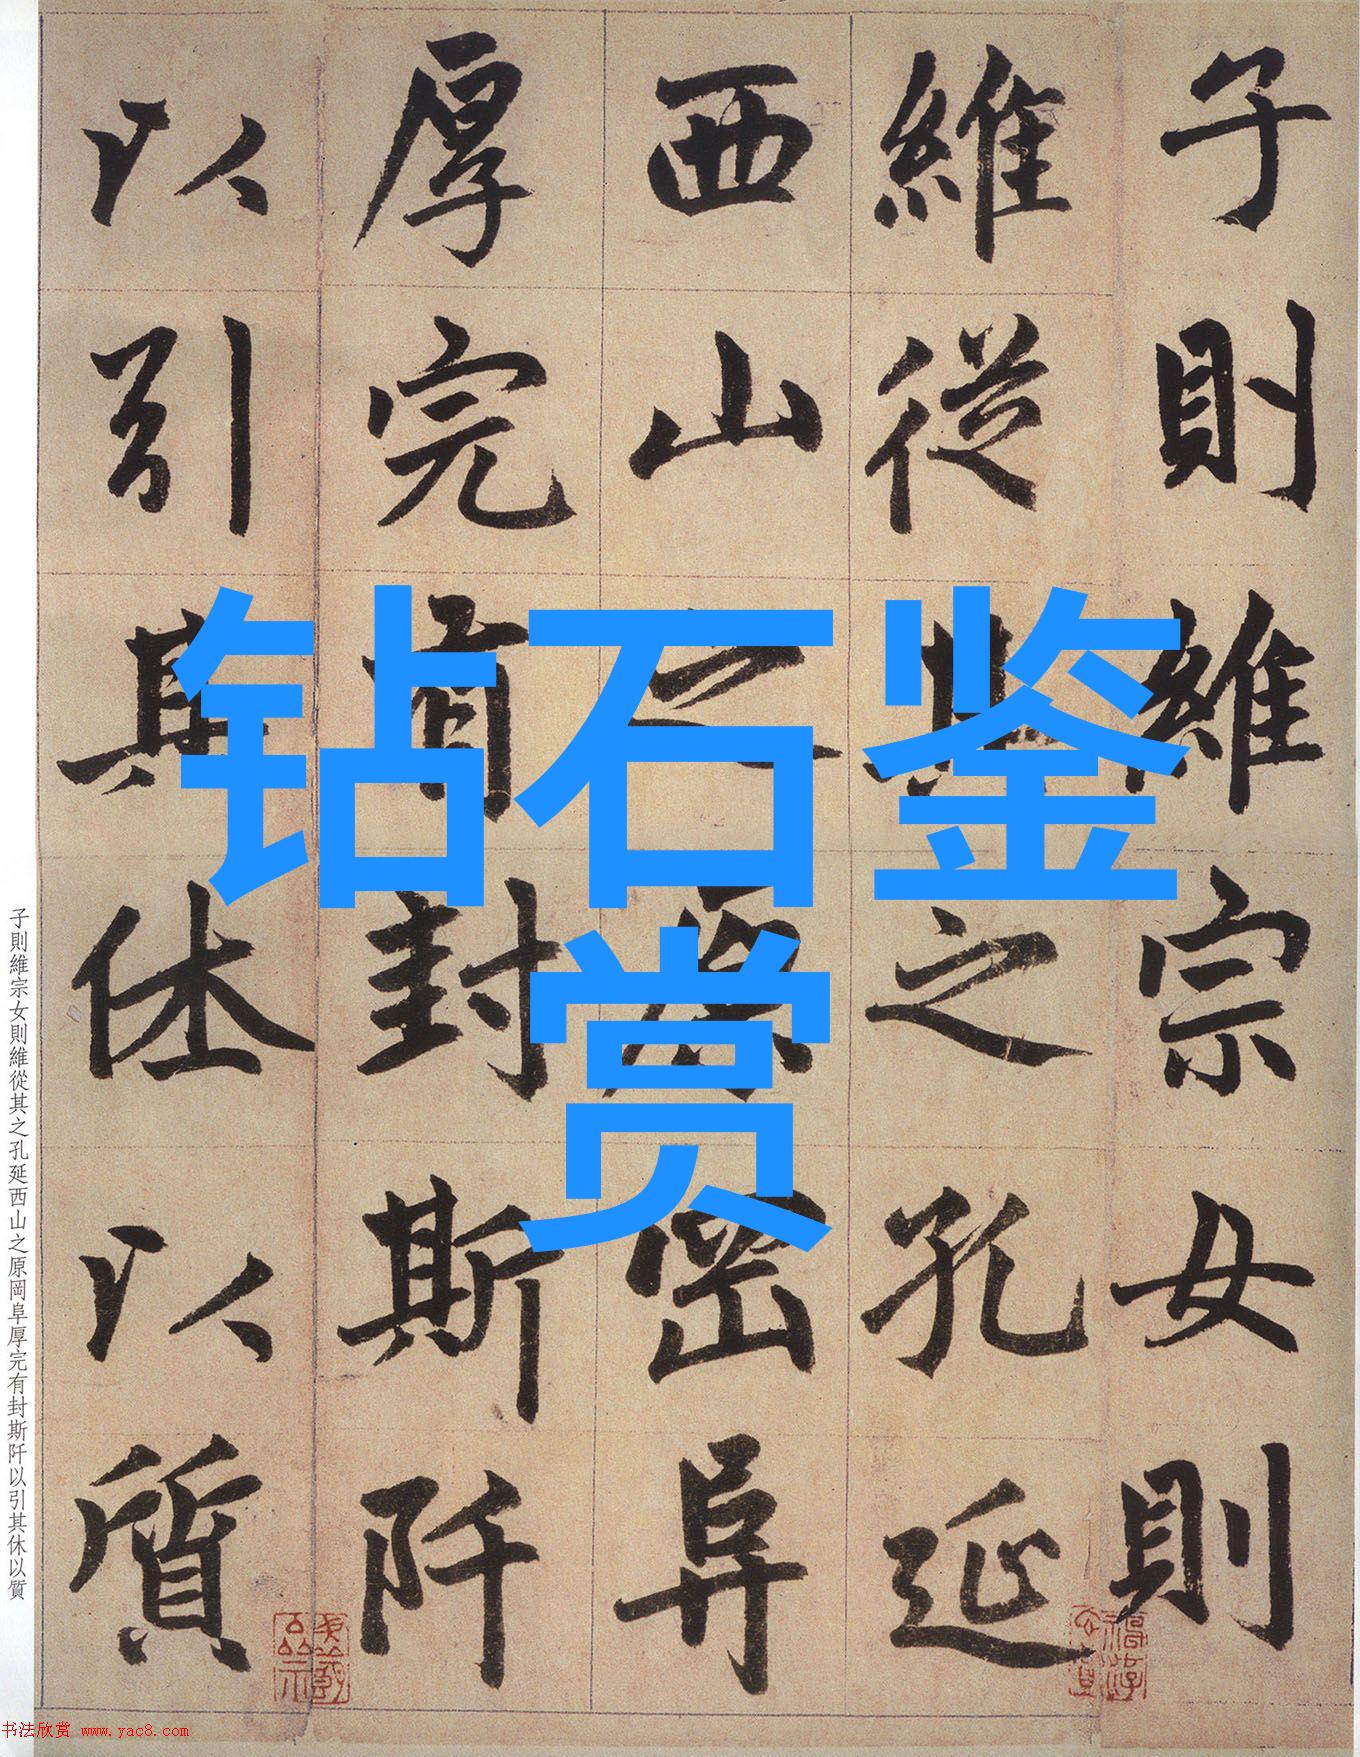 子則維宗女則
維從其之孔延
西山之原岡阜
厚完有封斯阡
以引其休以質
钻石鉴
赏
子則維宗女則維從其之孔延西山之原岡阜厚完有封斯阡以引其休以質
书法欣赏 www.yac8.com